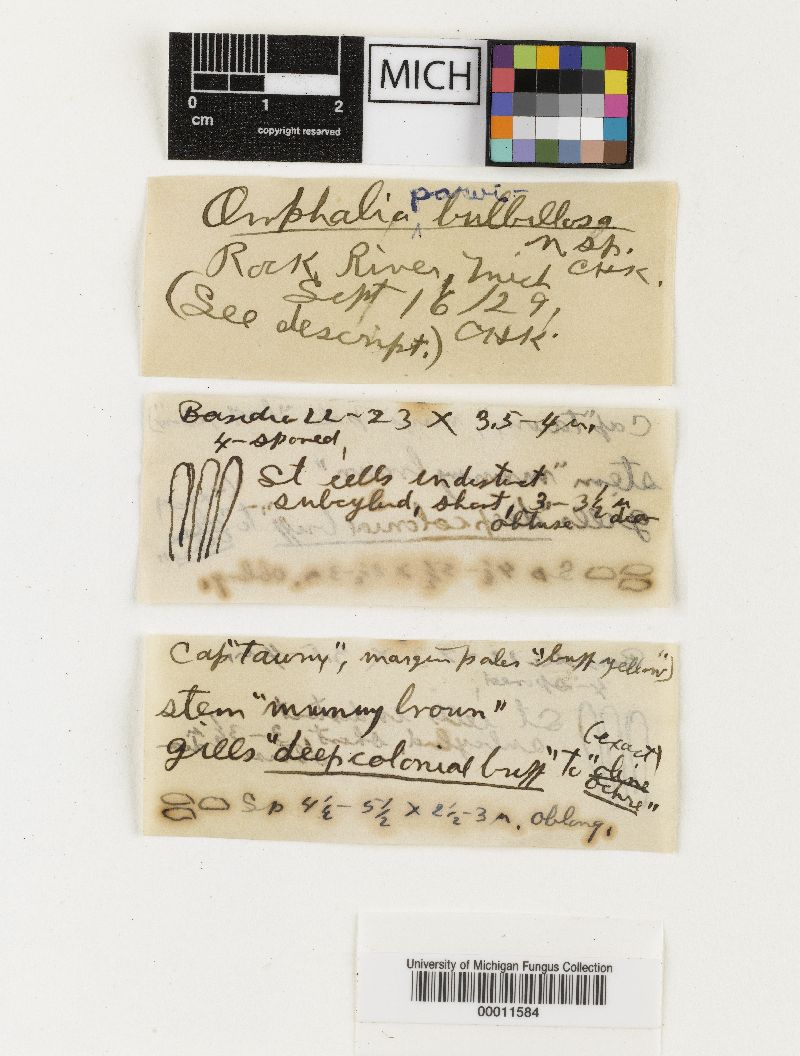 MICH
0 1 2
cm
copyright reserved
parvi-
Omphalia bulbillosa
n sp.
Rock River, Mich CHK.
Sept 16/29,
(See descript.) CHK.
Basidia 22-23 X 3.5-4 µ,
4-spored,
St cells indistinct,
subcylind, short, 3-3½ µ
obtuse
Cap "tawny", margin paler ("buff yellow")
stem "mummy brown"
(exact)
gills "deep colonial buff" to "olive
ochre"
Sp 4½-5½ x 2½-3 µ. oblong,
University of Michigan Fungus Collection
00011584